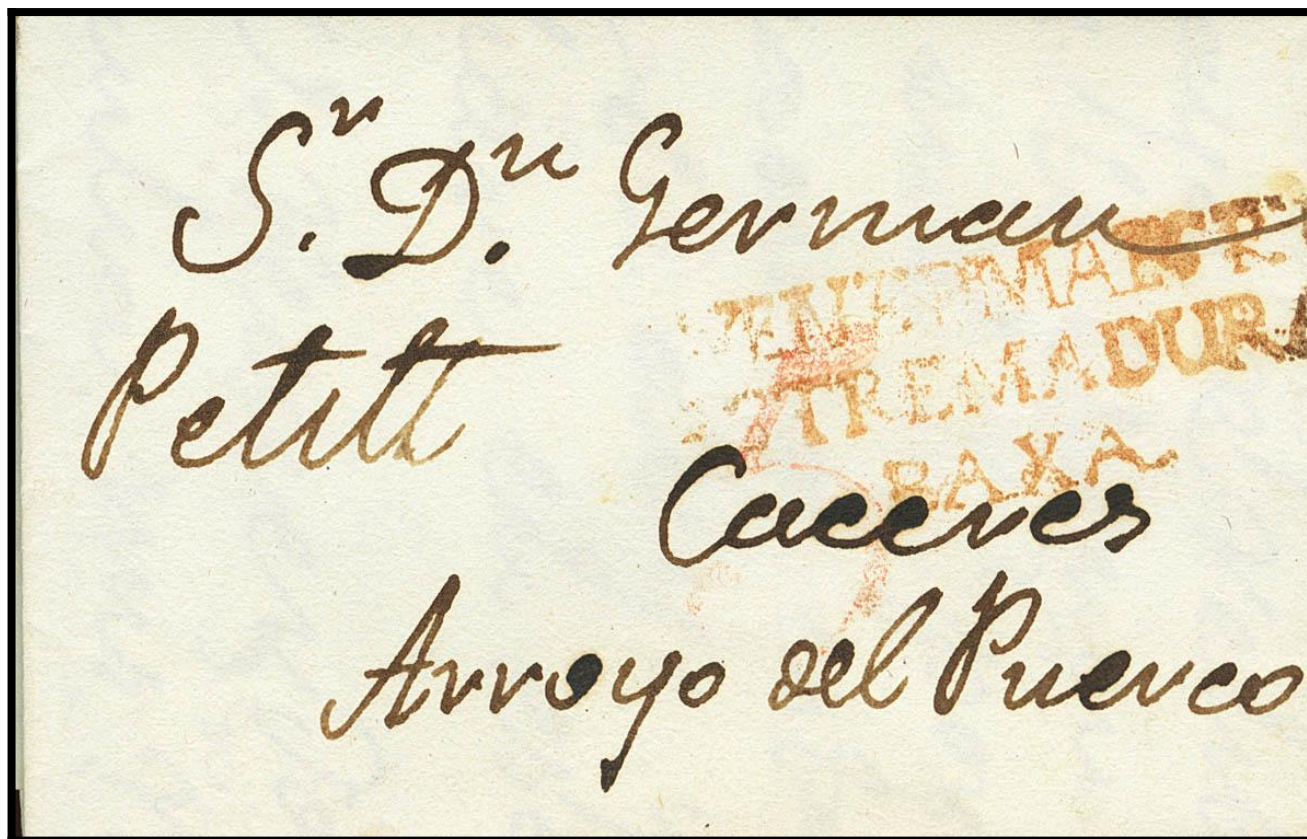 S.r D.n German
Petitt
ESTREMADURA
BAXA
Caceres
Arroyo del Puerco